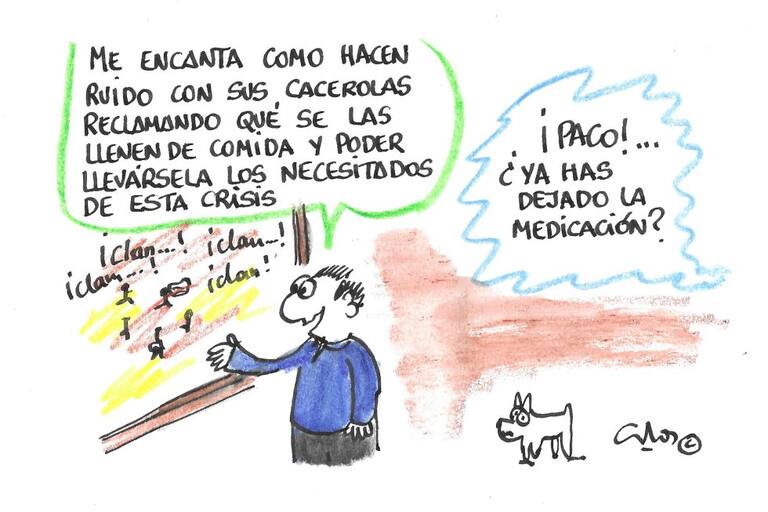 ME ENCANTA COMO HACEN
RUIDO CON SUS CACEROLAS
RECLAMANDO QUÉ SE LAS
LLENEN DE COMIDA Y PODER
LLEVÁRSELA LOS NECESITADOS
DE ESTA CRISIS
¡PACO!...
¿YA HAS
DEJADO LA
MEDICACIÓN?
¡clan...!
¡clan...!
¡clan...!
¡clan!